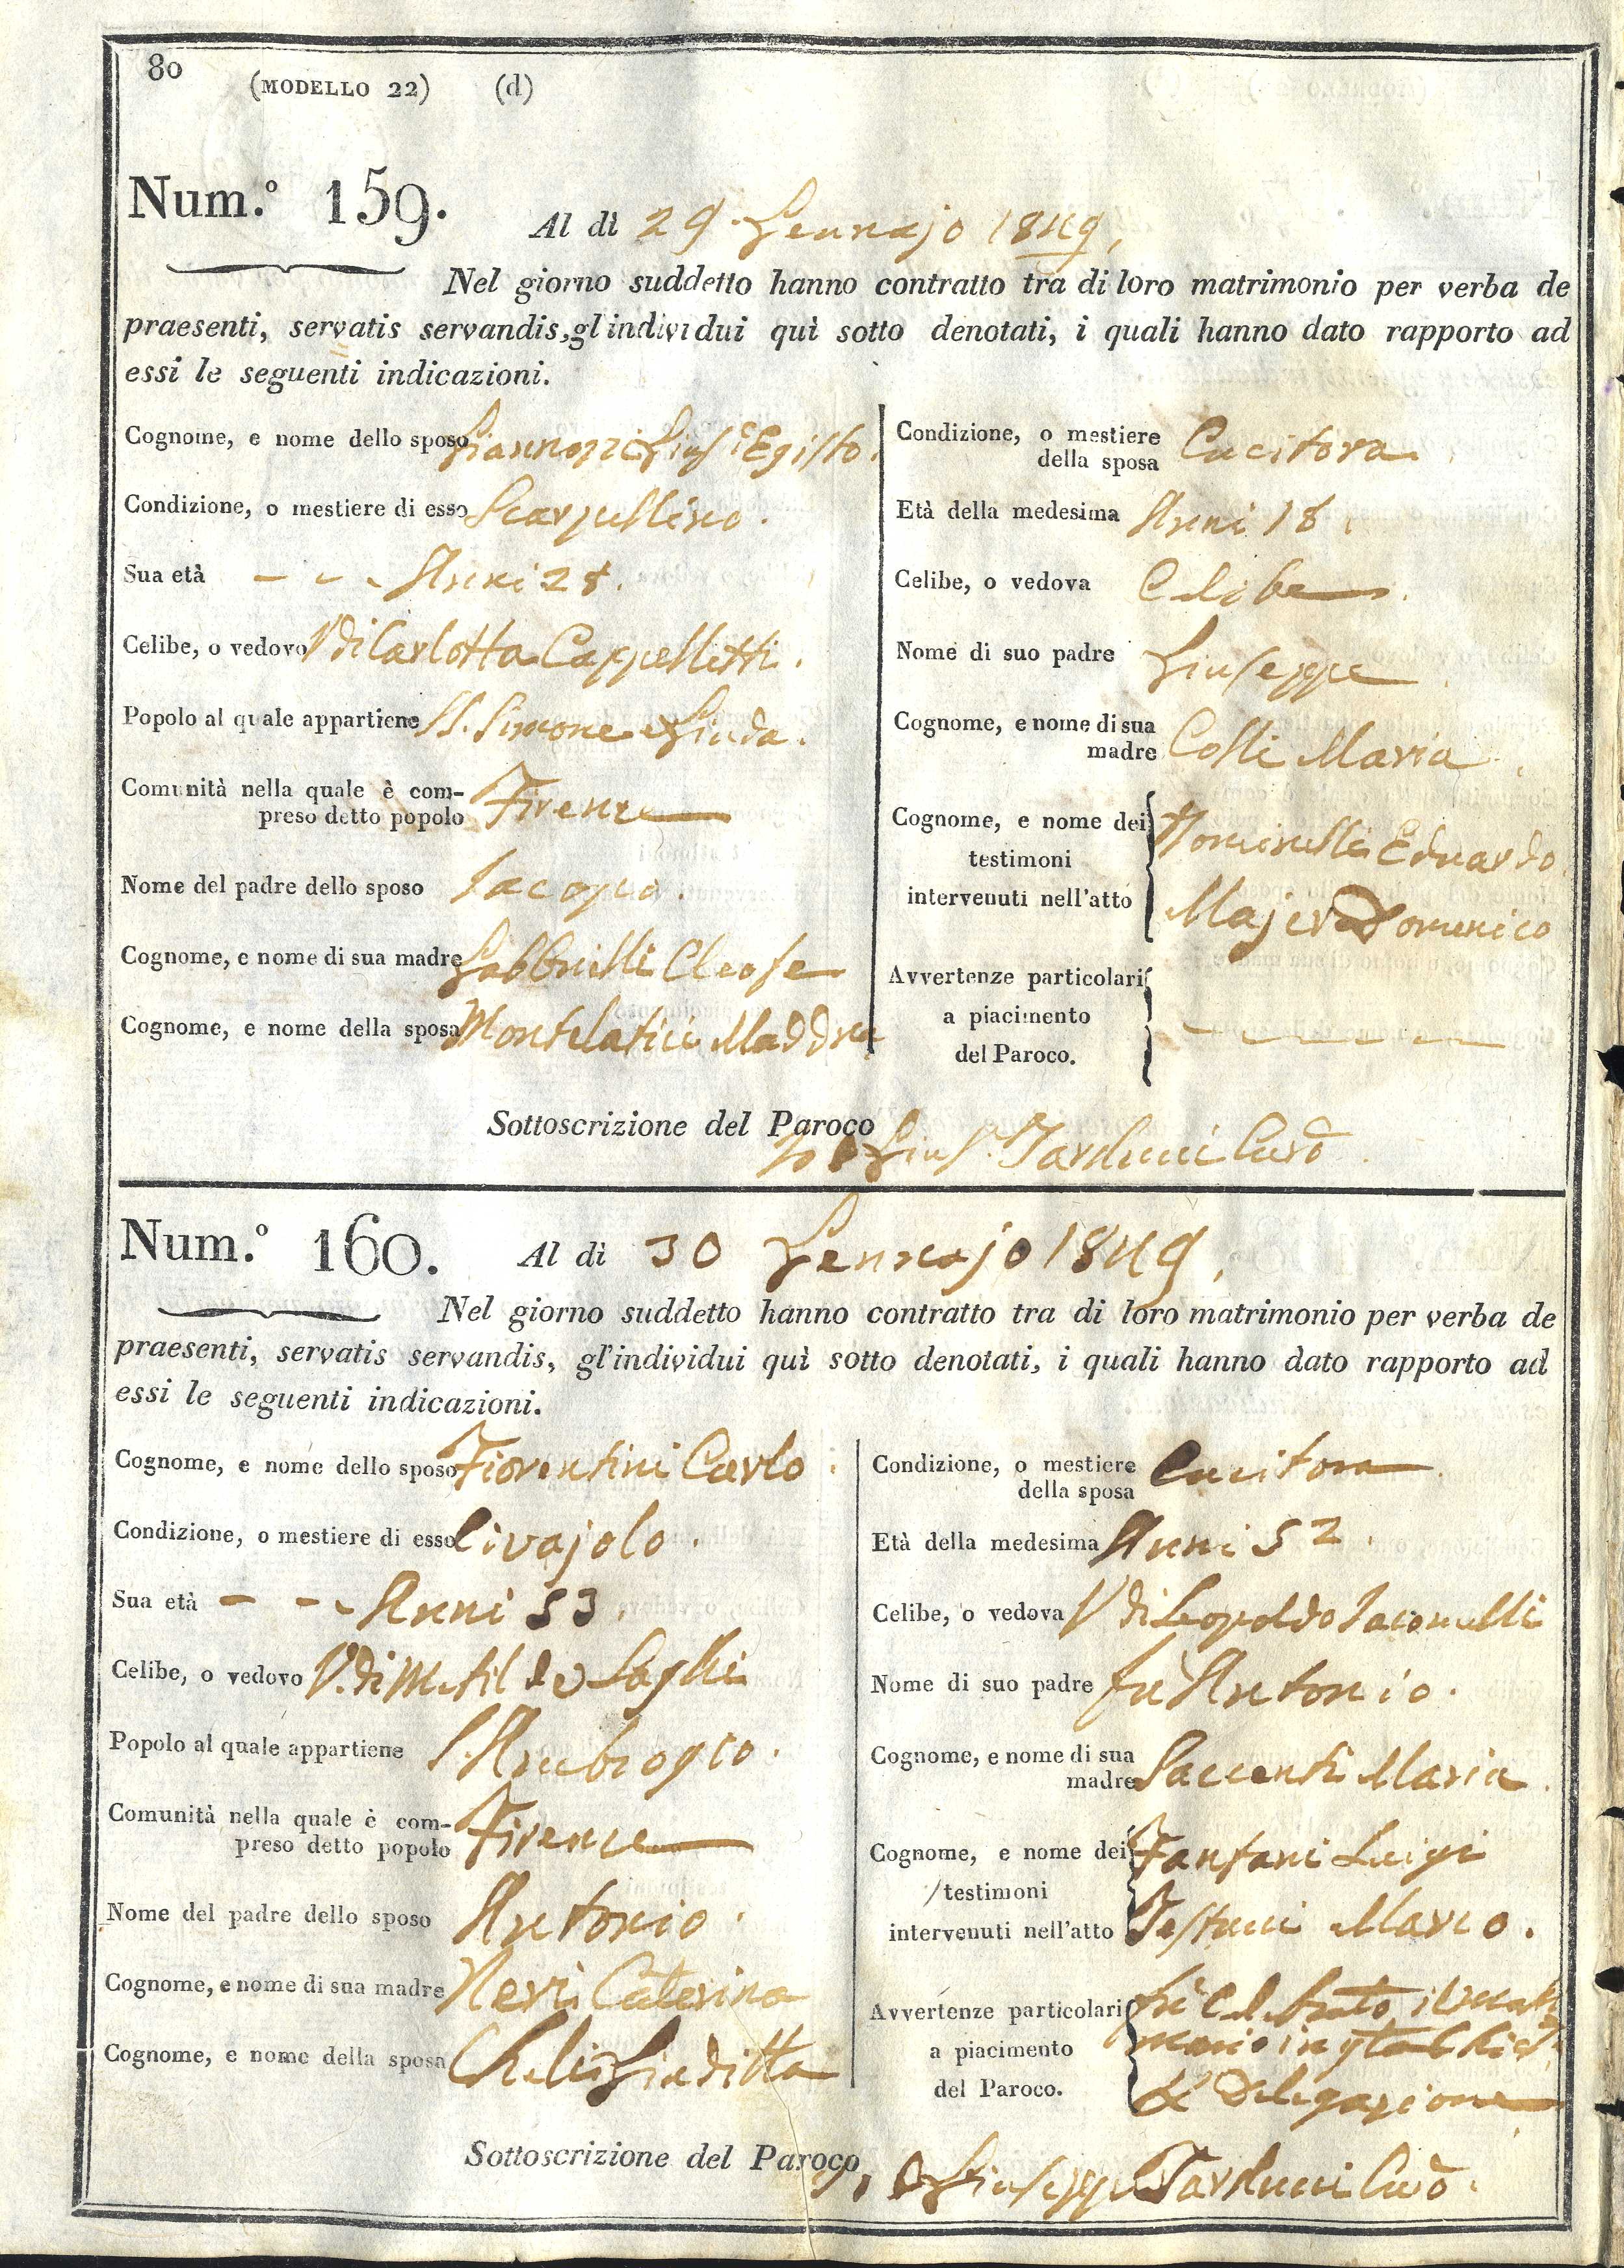 80
(MODELLO 22) (d)
Num.º 159.
Al dì 29 Gennajo 1849.
Nel giorno suddetto hanno contratto tra di loro matrimonio per verba de
praesenti, servatis servandis, gl'individui quì sotto denotati, i quali hanno dato rapporto ad
essi le seguenti indicazioni.
Cognome, e nome dello sposo Giannozzi Gius.e Egisto.
Condizione, o mestiere di esso Scarpellino.
Sua età - - - Anni 28.
Celibe, o vedovo V di Carlotta Cappelletti.
Popolo al quale appartiene SS. Simone e Giuda.
Comunità nella quale è com-
preso detto popolo Firenze
Nome del padre dello sposo Iacopo.
Cognome, e nome di sua madre Gabbrielli Cleofe
Cognome, e nome della sposa Montelatici Madd.na
Condizione, o mestiere
della sposa Cucitora.
Età della medesima Anni 18.
Celibe, o vedova Celibe.
Nome di suo padre Giuseppe
Cognome, e nome di sua
madre Colli Maria.
Cognome, e nome dei
testimoni
intervenuti nell'atto
Eduardo
Domenico
Avvertenze particolari
a piacimento
del Paroco.
Sottoscrizione del Paroco
Gius. Tarducci Curo.
Num.º 160.
Al dì 30 Gennajo 1849.
Nel giorno suddetto hanno contratto tra di loro matrimonio per verba de
praesenti, servatis servandis, gl'individui quì sotto denotati, i quali hanno dato rapporto ad
essi le seguenti indicazioni.
Cognome, e nome dello sposo Fiorentini Carlo.
Condizione, o mestiere di esso Civajolo.
Sua età - - - Anni 53.
Celibe, o vedovo V. di Matilde Laschi
Popolo al quale appartiene S. Ambrogio.
Comunità nella quale è com-
preso detto popolo Firenze
Nome del padre dello sposo Antonio.
Cognome, e nome di sua madre Neri Caterina
Cognome, e nome della sposa Cheli Giuditta
Condizione, o mestiere
della sposa Cucitora.
Età della medesima Anni 52.
Celibe, o vedova V di Leopoldo Iacomelli
Nome di suo padre fù Antonio.
Cognome, e nome di sua
madre Saccenti Maria.
Cognome, e nome dei
testimoni
intervenuti nell'atto
Fanfani Luigi
Testucci Marco.
Avvertenze particolari
a piacimento
del Paroco.
fù celebrato il matri
monio in q.ta Chiesa
Delegazione
Sottoscrizione del Paroco
Giuseppe Tarducci Curo.